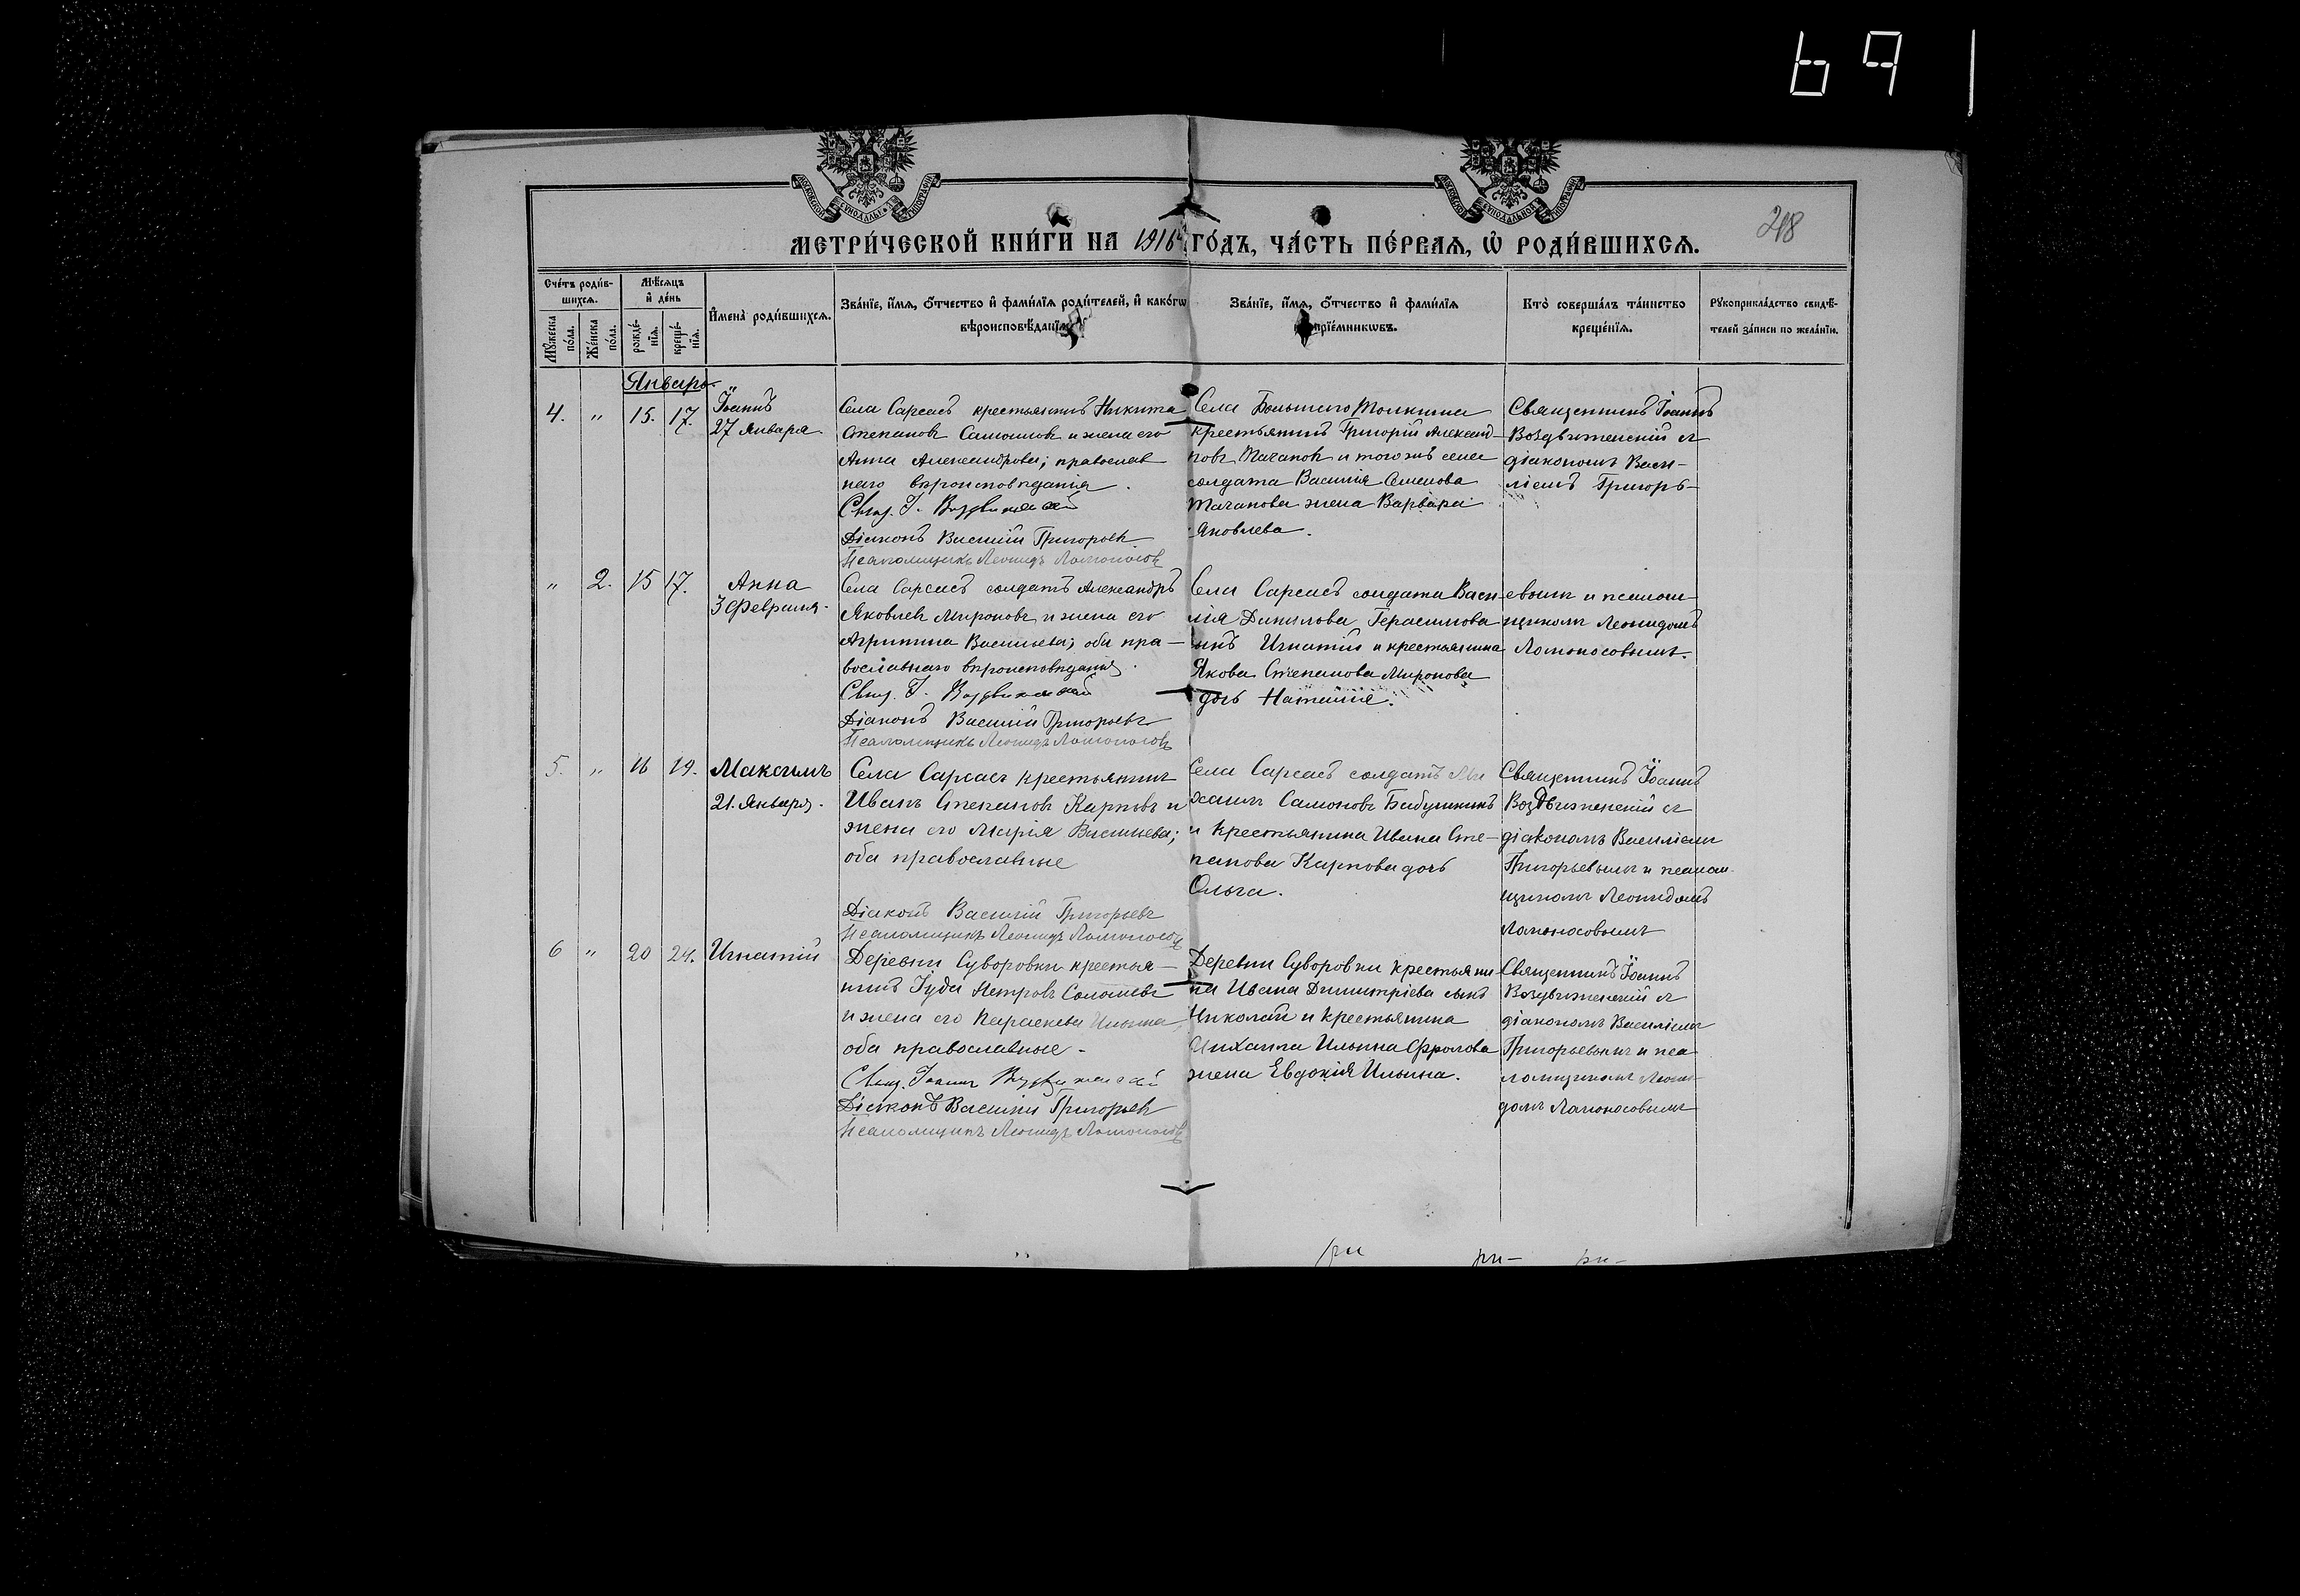 691
218
МЕТРИ́ЧЕСКОЙ КНИ́ГИ НА 1916й ГО́ДЪ, ЧА́СТЬ ПЕ́РВАЯ, Ѡ РОДИ́ВШИХСЯ.
Сче́тъ роди́в-
шихся.
Му́жеска
по́ла.
Же́нска
по́ла.
Мѣ́сяцъ
и де́нь
рожде́-
нїя.
креще́-
нїя.
Имена̀ роди́вшихся.
Зва́нїе, и́мя, о́тчество и фами́лїя роди́телей, и како́гѡ
вѣроисповѣ́данїя.
Зва́нїе, и́мя, о́тчество и фами́лїя
прїе́мникѡвъ.
Кто̀ соверша́лъ та́инство
креще́нїя.
Рукоприкла́дство свидѣ́-
телей за́писи по жела́нїю.
Январь
4. " 15. 17.
Іоаннъ
27 января.
Села Сарсасъ крестьянинъ Никита
Степановъ Самойловъ и жена его
Анна Александрова; православ
наго вѣроисповѣданія.
Свящ. І. Воздвиженскій
Діаконъ Василій Григорьевъ
Псаломщикъ Леонидъ Ломоносовъ
Села Большого Толкина
крестьянинъ Григорій Александ-
ровъ Тачановъ и того же села
солдата Василія Семенова
Тачанова жена Варвара
Яковлева.
Священникъ Іоаннъ
Воздвиженскій съ
діакономъ Васи-
ліемъ Григорь-
" 2. 15 17.
Анна
3 Февраля.
Села Сарсасъ солдатъ Александръ
Яковлевъ Мироновъ и жена его
Агрипина Васильева; оба пра-
вославнаго вѣроисповѣданія.
Свящ. І. Воздвиженскій
Діаконъ Василій Григорьевъ
Псаломщикъ Леонидъ Ломоносовъ
Села Сарсасъ солдата Васи-
лія Данилова Герасимова
сынъ Игнатій и крестьянина
Якова Степанова Миронова
дочь Наталія.
евымъ и псалом-
щикомъ Леонидомъ
Ломоносовымъ.
5. " 16 19.
Максимъ
21. Января.
Села Сарсасъ крестьянинъ
Иванъ Степановъ Карповъ и
жена его Марія Васильева;
оба православные
Діаконъ Василій Григорьевъ
Псаломщикъ Леонидъ Ломоносовъ
Села Сарсасъ солдатъ Ми
хаилъ Самоновъ Бабушкинъ
и крестьянина Ивана Сте-
панова Карпова дочь
Ольга.
Священникъ Іоаннъ
Воздвиженскій съ
діакономъ Василіемъ
Григорьевымъ и псалом-
щикомъ Леонидомъ
Ломоносовымъ
6 " 20 24.
Игнатій
Деревни Суворовки крестья-
нинъ Іуда Петровъ Соловьевъ
и жена его Параскева Ильина,
оба православные.
Свящ. Іоаннъ Воздвиженскій
Діаконъ Василій Григорьевъ
Псаломщикъ Леонидъ Ломоносовъ
Деревни Суворовки крестьяни
на Ивана Димитріева сынъ
Николай и крестьянина
Михаила Ильина Фролова
жена Евдокія Ильина.
Священникъ Іоаннъ
Воздвиженскій съ
діакономъ Василіемъ
Григорьевымъ и пса
ломщикомъ Леони-
домъ Ломоносовымъ
ри ри- ри-